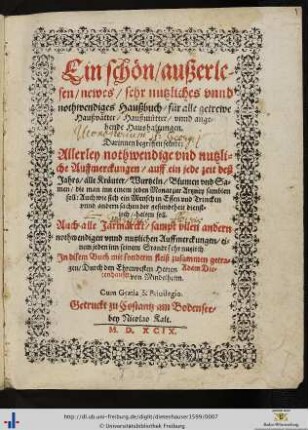 Ein schön/ außerle-
sen/ newes/ sehr nutzliches vnnd
nothwendiges Haußbuch/ für alle getrewe
Haußvätter/ Haußmütter/ vnnd ange-
hende Haushaltungen.
Darinnen begriffen seind:
Allerley nothwendige vnd nutzli-
che Auffmerckungen/ auff ein jede zeit deß
Jahrs/ alle Kräuter/ Wurtzeln/ Blumen vnd Sa-
men/ die man inn einem jeden Monat zur Artzney samblen
soll: Auch wie sich ein Mensch in Essen vnd Trincken
vnnd andern sachen der gesundheit dienst-
lich/ halten soll.
Auch alle Jarmärckt/ sampt vilen andern
nothwendigen vnnd nutzlichen Auffmerckungen/ ei-
nem jeden inn seinem Standt sehr nutzlich
In disem Buch mit sonderm fleiß zusammen getra-
gen/ Durch den Ehrnvesten Herren Adam Die-
tenhauser
von Mindelheim.
Cum Gratia & Priuilegio.
Getruckt zu Costantz am Bodensee/
bey Nicolao Kalt.
M. D. XCIX.
http://dl.ub.uni-freiburg.de/diglit/dietenhauser1599/0007
© Universitätsbibliothek Freiburg
Baden-Württemberg